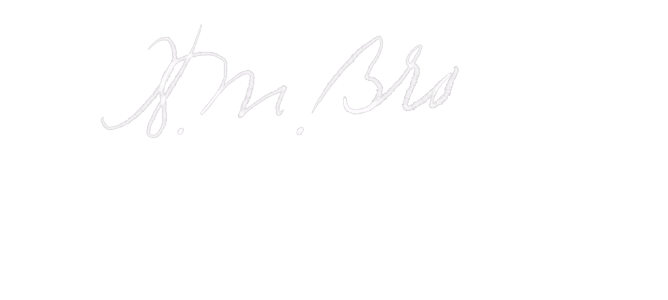 H. M. Bro